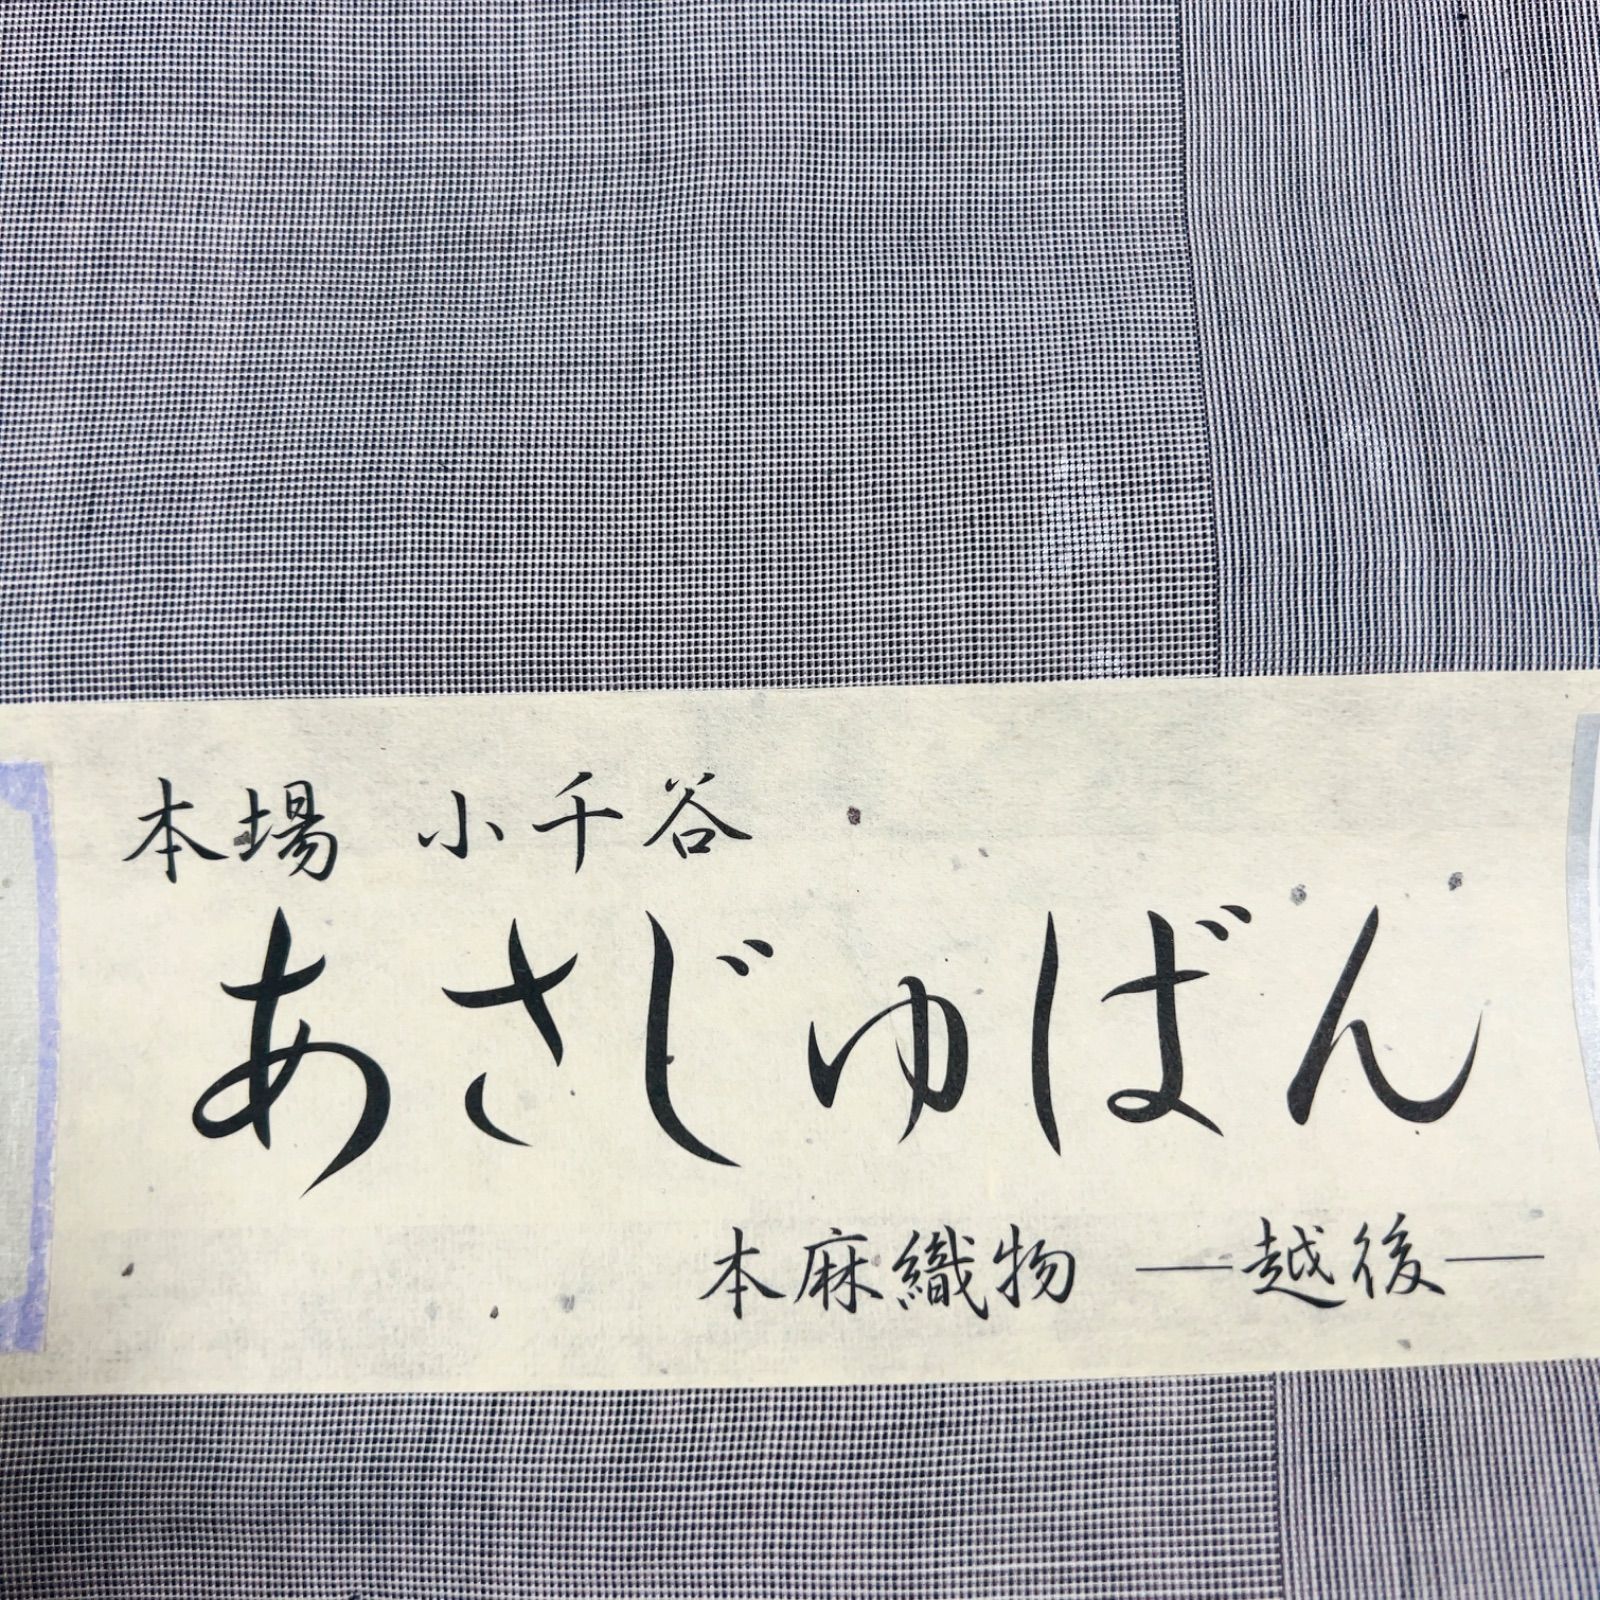 本場 小千谷
あさじゅばん
本麻織物 ―越後―